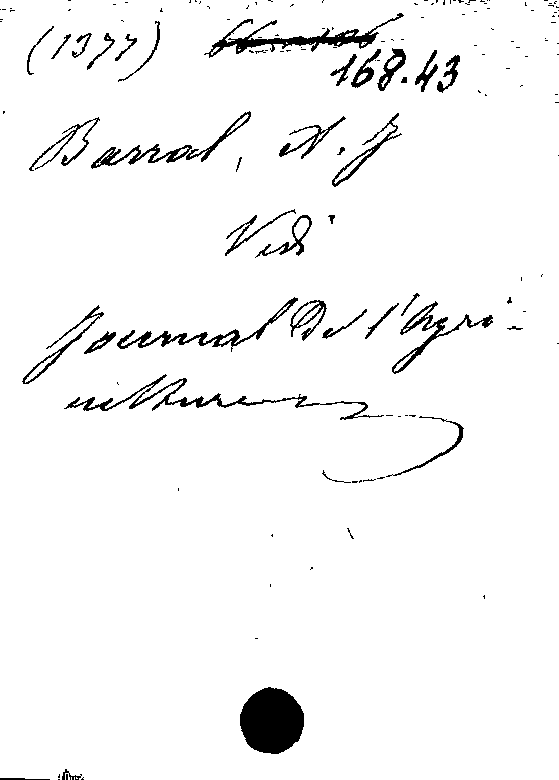 (1377)
168.43
Barral, A. J
Vedi
Journal de l'Agri-
culture